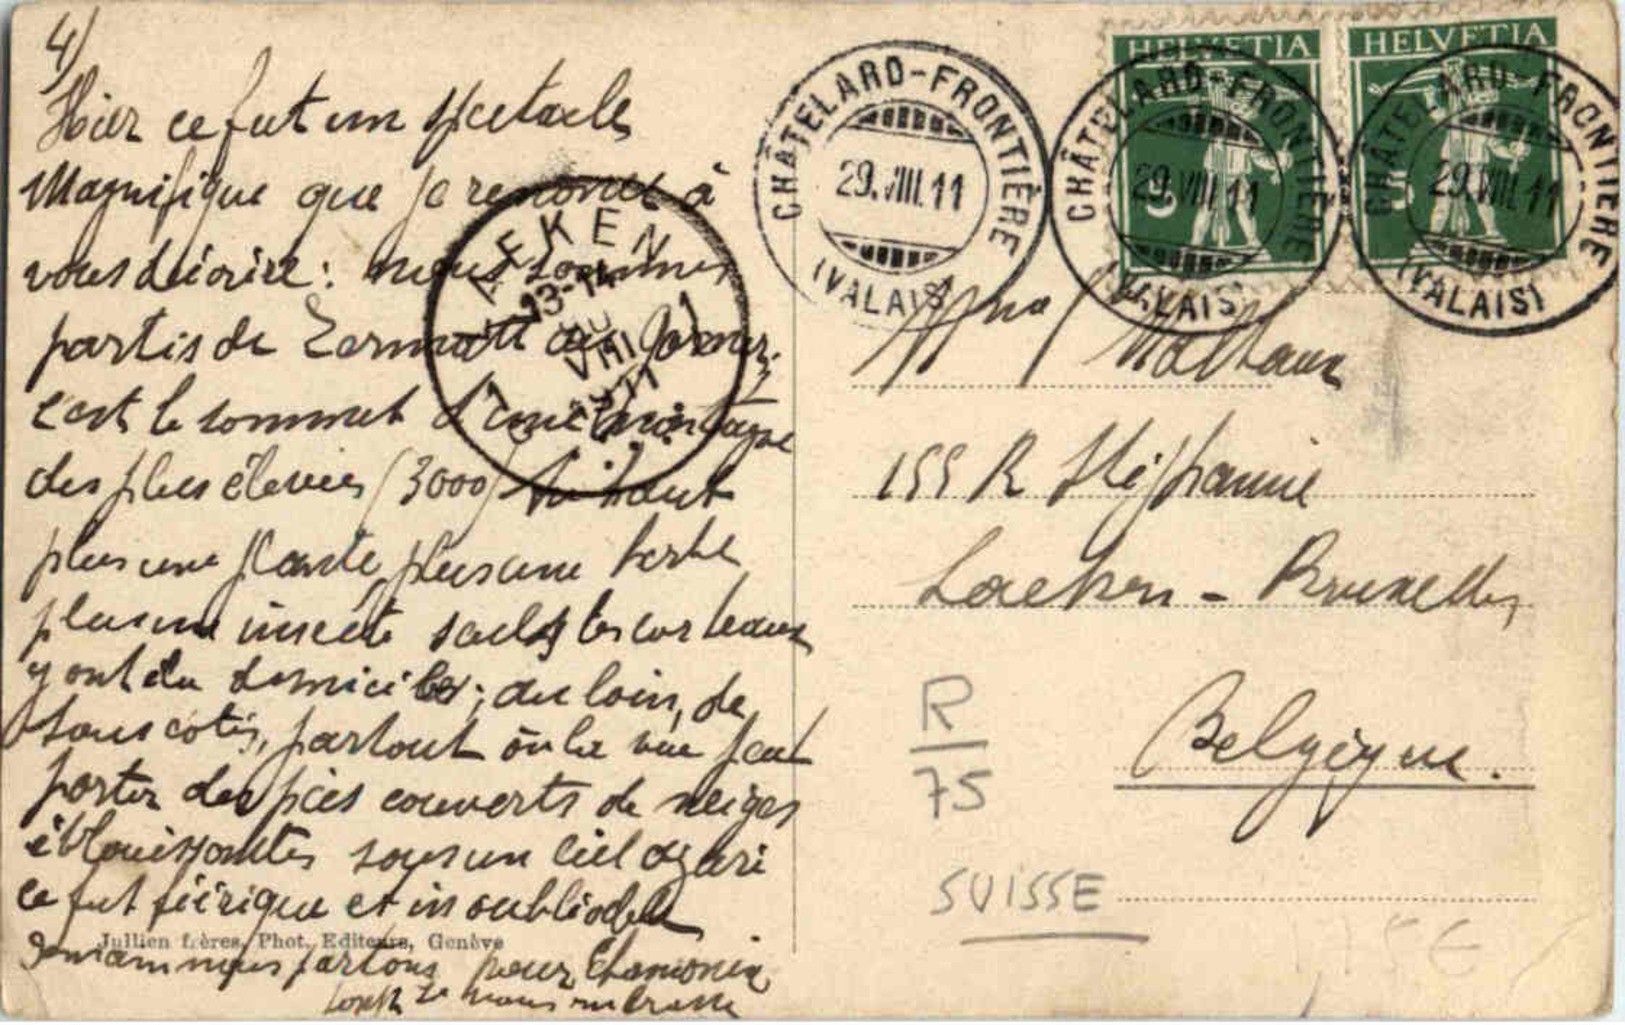 4/
Hier ce fut un spectacle
Magnifique que je renonce à
vous décrire : nous sommes
partis de Zermatt au Gorner;
c'est le sommet d'une montagne
des plus élevées (3000)
plus une plante, plus une herbe
plus un insecte seuls les corbeaux
y ont du domicile; au loin, de
tous cotés, partout où la vue peut
porter des pics couverts de neiges
éblouissantes sous un ciel azuré
ce fut féérique et inoubliable
demain nous partons pour Chamonix
nous embrasse
Jullien frères, Phot. Editeurs, Genève
LAEKEN
13-14
VIII
1911
CHÂTELARD-FRONTIÈRE
29.VIII.11
(VALAIS)
HELVETIA
5
CHÂTELARD-FRONTIÈRE
29.VIII.11
(VALAIS)
HELVETIA
CHÂTELARD-FRONTIÈRE
29.VIII.11
(VALAIS)
155 R Stéphanie
Laeken - Bruxelles
Belgique.
R
75
SUISSE